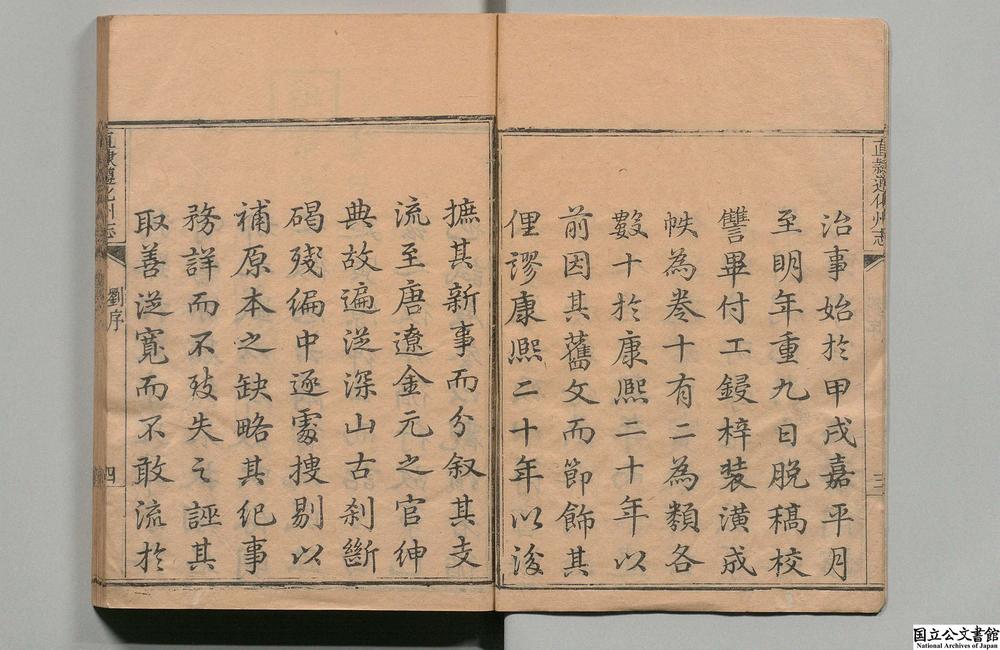 直隸遵化州志
三
治事始於甲戌嘉平月
至明年重九日脫稿校
讐畢付工鋟梓裝潢成
帙為卷十有二為類各
數十於康熙二十年以
前因其舊文而節飾其
俚謬康熙二十年以後
摭其新事而分叙其支
流至唐遼金元之官紳
典故遍從深山古刹斷
碣殘編中逐處搜剔以
補原本之缺略其紀事
務詳而不敢失之誣其
取善從寬而不敢流於
直隸遵化州志
劉序
四
国立公文書館
National Archives of Japan